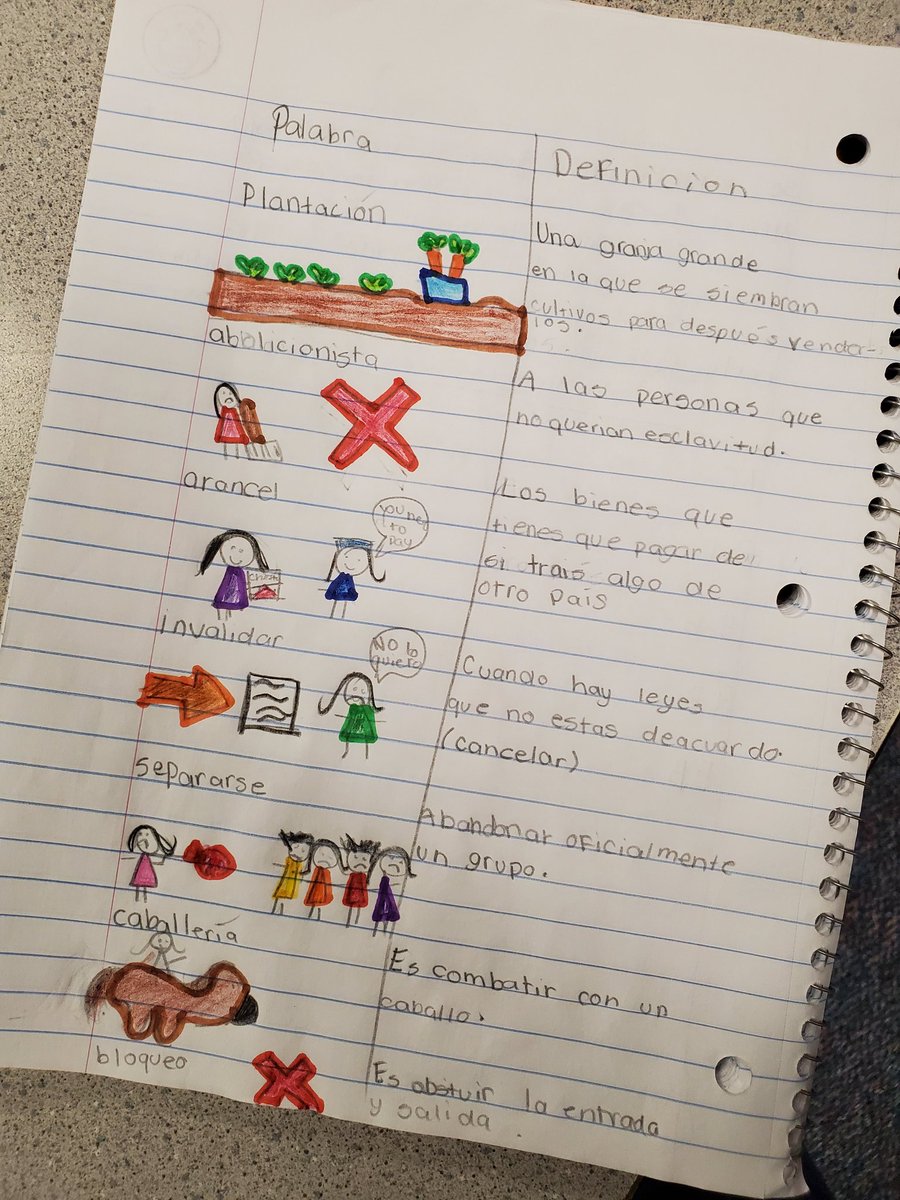 Palabra
Definicion
Plantación
Una granja grande
en la que se siembran
cultivos para después vender-
los.
abolicionista
A las personas que
no querian esclavitud.
arancel
Los bienes que
tienes que pagar de
si trais algo de
otro país
to
pay
invalidar
Cuando hay leyes
que no estas deacuardo
(cancelar)
NO lo
quiero
separarse
Abandonar oficialmente
un grupo.
caballería
Es combatir con un
caballo.
bloqueo
Es obstuir la entrada
y salida.